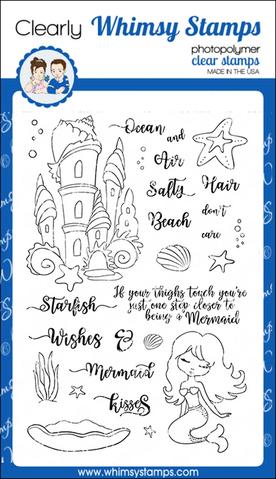 Clearly Whimsy Stamps
photopolymer
clear stamps
MADE IN THE USA
Ocean
and
Air
Salty Hair
Beach don't
care
If your thighs touch you're
just one step closer to
being a Mermaid
Starfish
Wishes &
Mermaid
kisses
www.whimsystamps.com